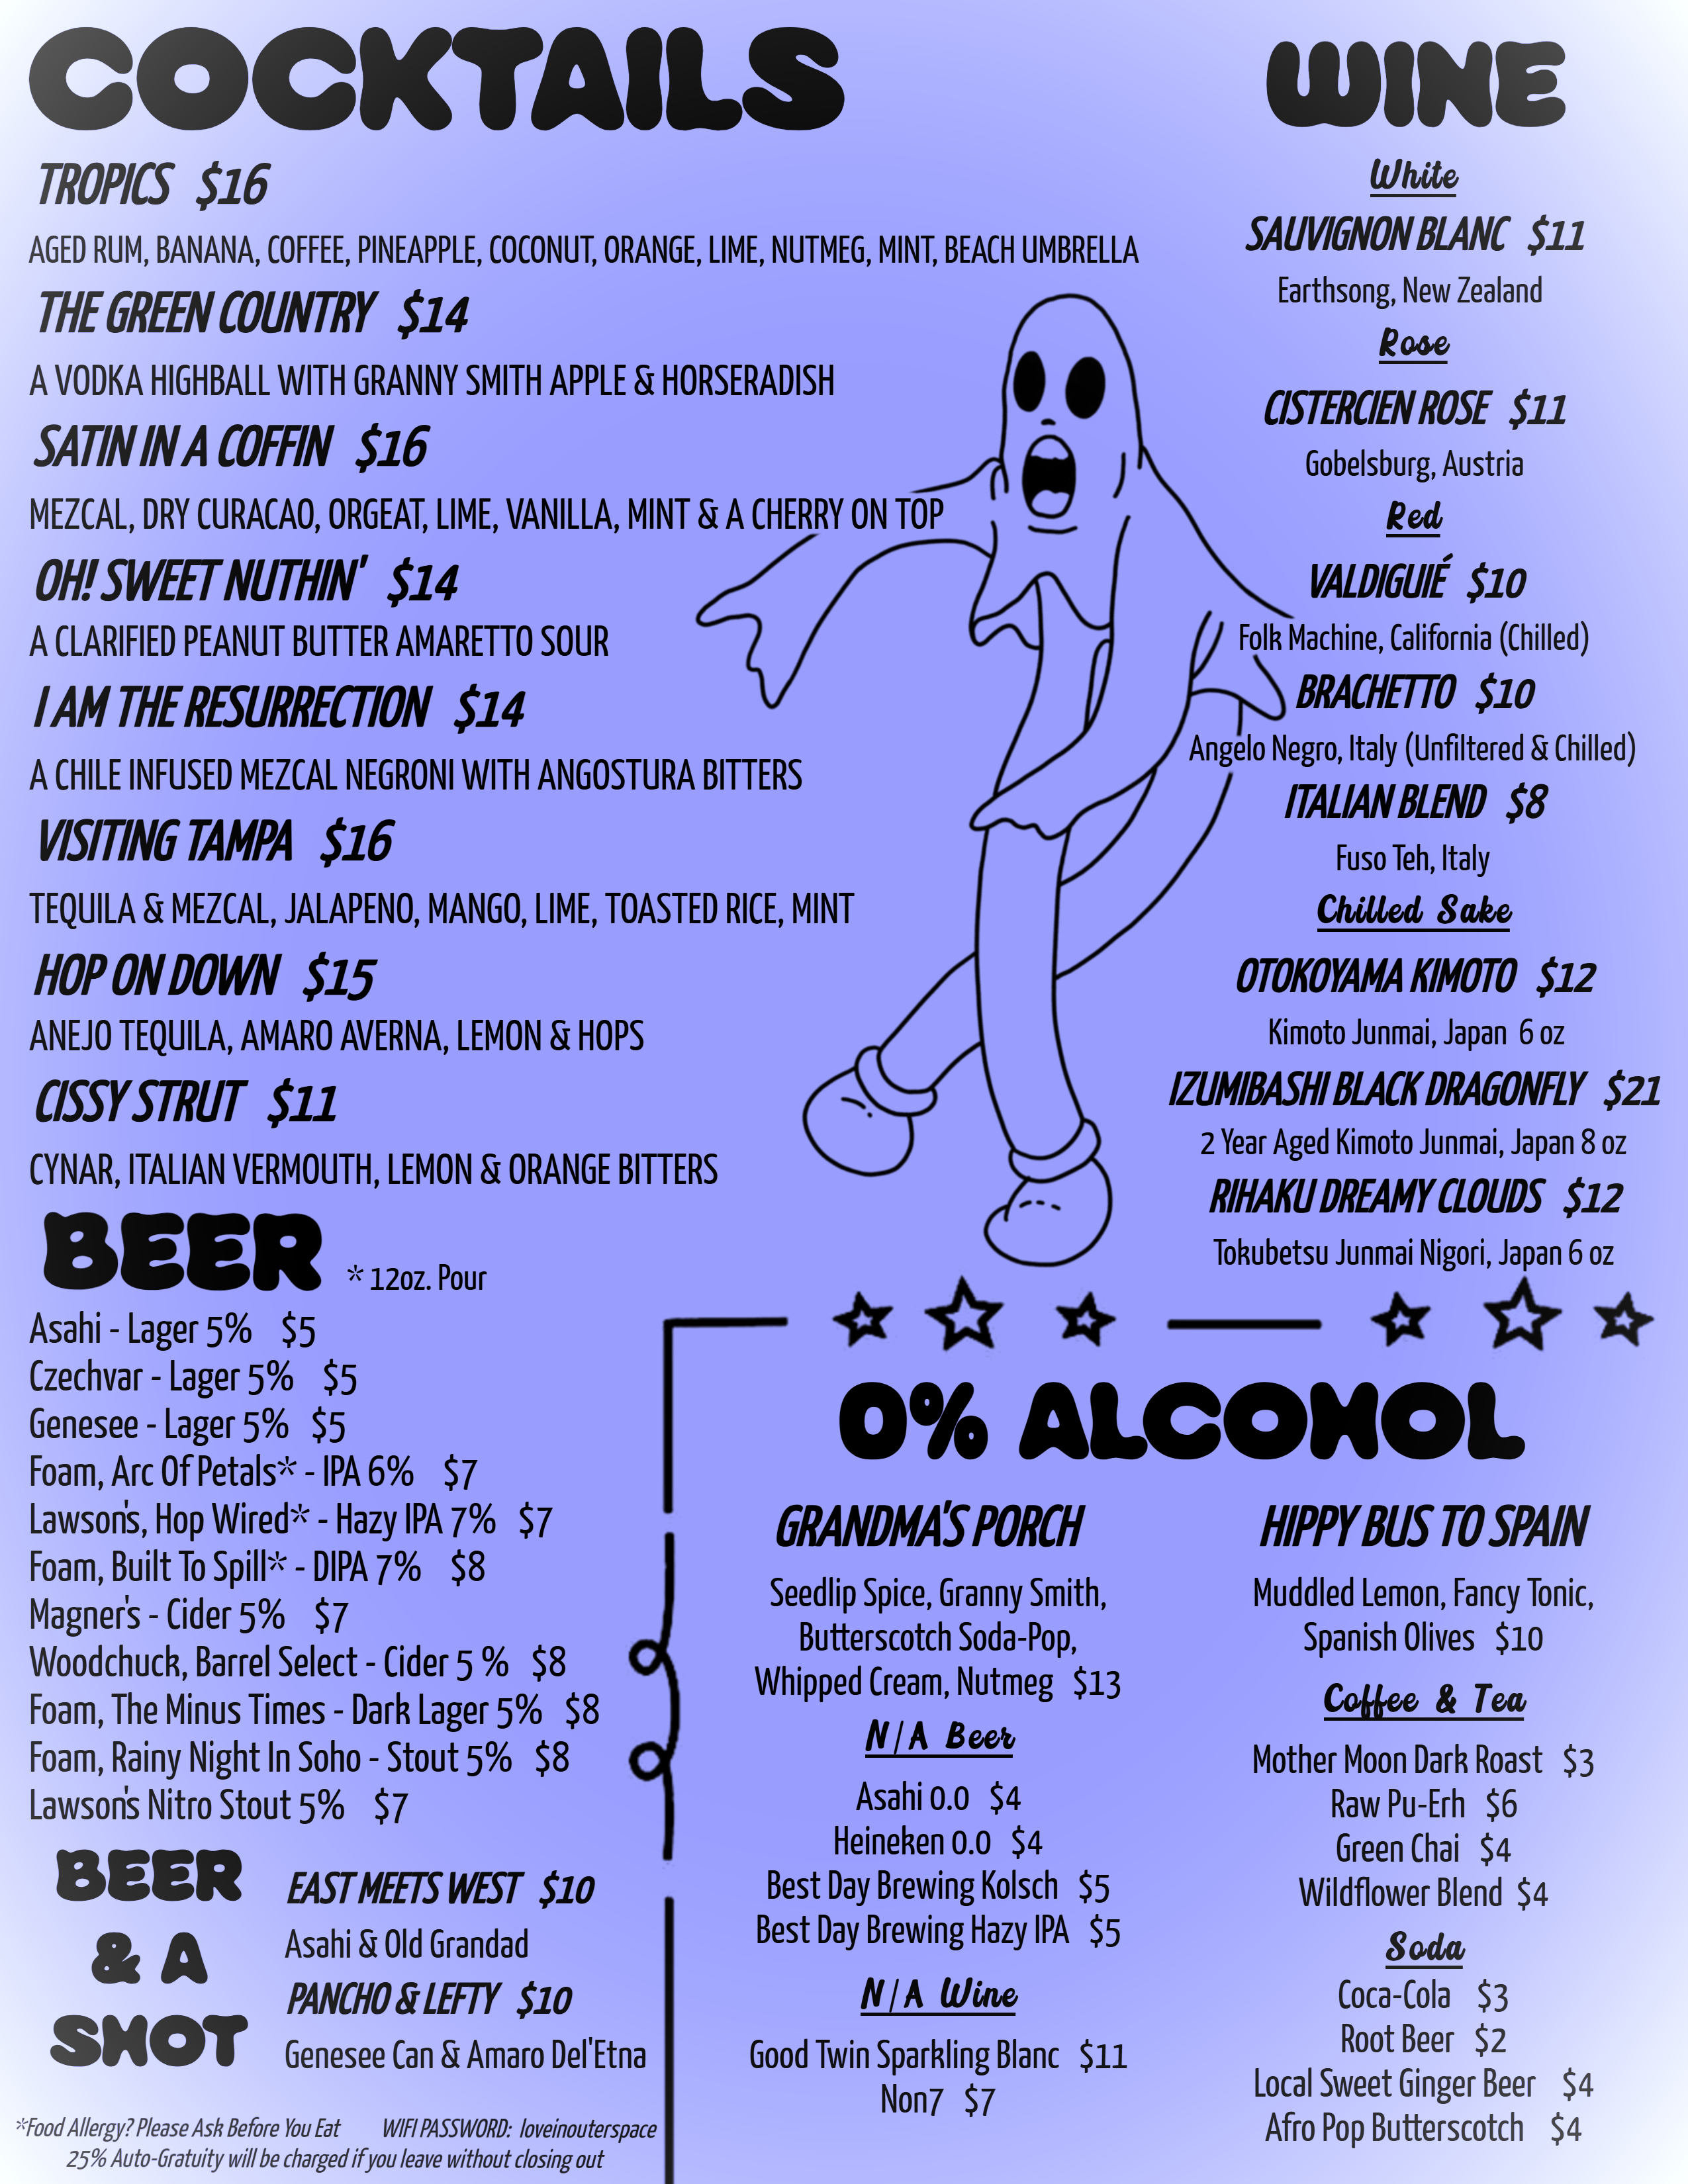 COCKTAILS
TROPICS $16
AGED RUM, BANANA, COFFEE, PINEAPPLE, COCONUT, ORANGE, LIME, NUTMEG, MINT, BEACH UMBRELLA
THE GREEN COUNTRY $14
A VODKA HIGHBALL WITH GRANNY SMITH APPLE & HORSERADISH
SATIN IN A COFFIN $16
MEZCAL, DRY CURACAO, ORGEAT, LIME, VANILLA, MINT & A CHERRY ON TOP
OH! SWEET NUTHIN' $14
A CLARIFIED PEANUT BUTTER AMARETTO SOUR
I AM THE RESURRECTION $14
A CHILE INFUSED MEZCAL NEGRONI WITH ANGOSTURA BITTERS
VISITING TAMPA $16
TEQUILA & MEZCAL, JALAPENO, MANGO, LIME, TOASTED RICE, MINT
HOP ON DOWN $15
ANEJO TEQUILA, AMARO AVERNA, LEMON & HOPS
CISSY STRUT $11
CYNAR, ITALIAN VERMOUTH, LEMON & ORANGE BITTERS
WINE
White
SAUVIGNON BLANC $11
Earthsong, New Zealand
Rose
CISTERCIEN ROSE $11
Gobelsburg, Austria
Red
VALDIGUIÉ $10
Folk Machine, California (Chilled)
BRACHETTO $10
Angelo Negro, Italy (Unfiltered & Chilled)
ITALIAN BLEND $8
Fuso Teh, Italy
Chilled Sake
OTOKOYAMA KIMOTO $12
Kimoto Junmai, Japan 6 oz
IZUMIBASHI BLACK DRAGONFLY $21
2 Year Aged Kimoto Junmai, Japan 8 oz
RIHAKU DREAMY CLOUDS $12
Tokubetsu Junmai Nigori, Japan 6 oz
BEER * 12oz. Pour
Asahi - Lager 5% $5
Czechvar - Lager 5% $5
Genesee - Lager 5% $5
Foam, Arc Of Petals* - IPA 6% $7
Lawson's, Hop Wired* - Hazy IPA 7% $7
Foam, Built To Spill* - DIPA 7% $8
Magner's - Cider 5% $7
Woodchuck, Barrel Select - Cider 5 % $8
Foam, The Minus Times - Dark Lager 5% $8
Foam, Rainy Night In Soho - Stout 5% $8
Lawson's Nitro Stout 5% $7
BEER
& A
SHOT
EAST MEETS WEST $10
Asahi & Old Grandad
PANCHO & LEFTY $10
Genesee Can & Amaro Del'Etna
*Food Allergy? Please Ask Before You Eat WIFI PASSWORD: loveinouterspace
25% Auto-Gratuity will be charged if you leave without closing out
0% ALCOHOL
GRANDMA'S PORCH
Seedlip Spice, Granny Smith,
Butterscotch Soda-Pop,
Whipped Cream, Nutmeg $13
N/A Beer
Asahi 0.0 $4
Heineken 0.0 $4
Best Day Brewing Kolsch $5
Best Day Brewing Hazy IPA $5
N/A Wine
Good Twin Sparkling Blanc $11
Non7 $7
HIPPY BUS TO SPAIN
Muddled Lemon, Fancy Tonic,
Spanish Olives $10
Coffee & Tea
Mother Moon Dark Roast $3
Raw Pu-Erh $6
Green Chai $4
Wildflower Blend $4
Soda
Coca-Cola $3
Root Beer $2
Local Sweet Ginger Beer $4
Afro Pop Butterscotch $4